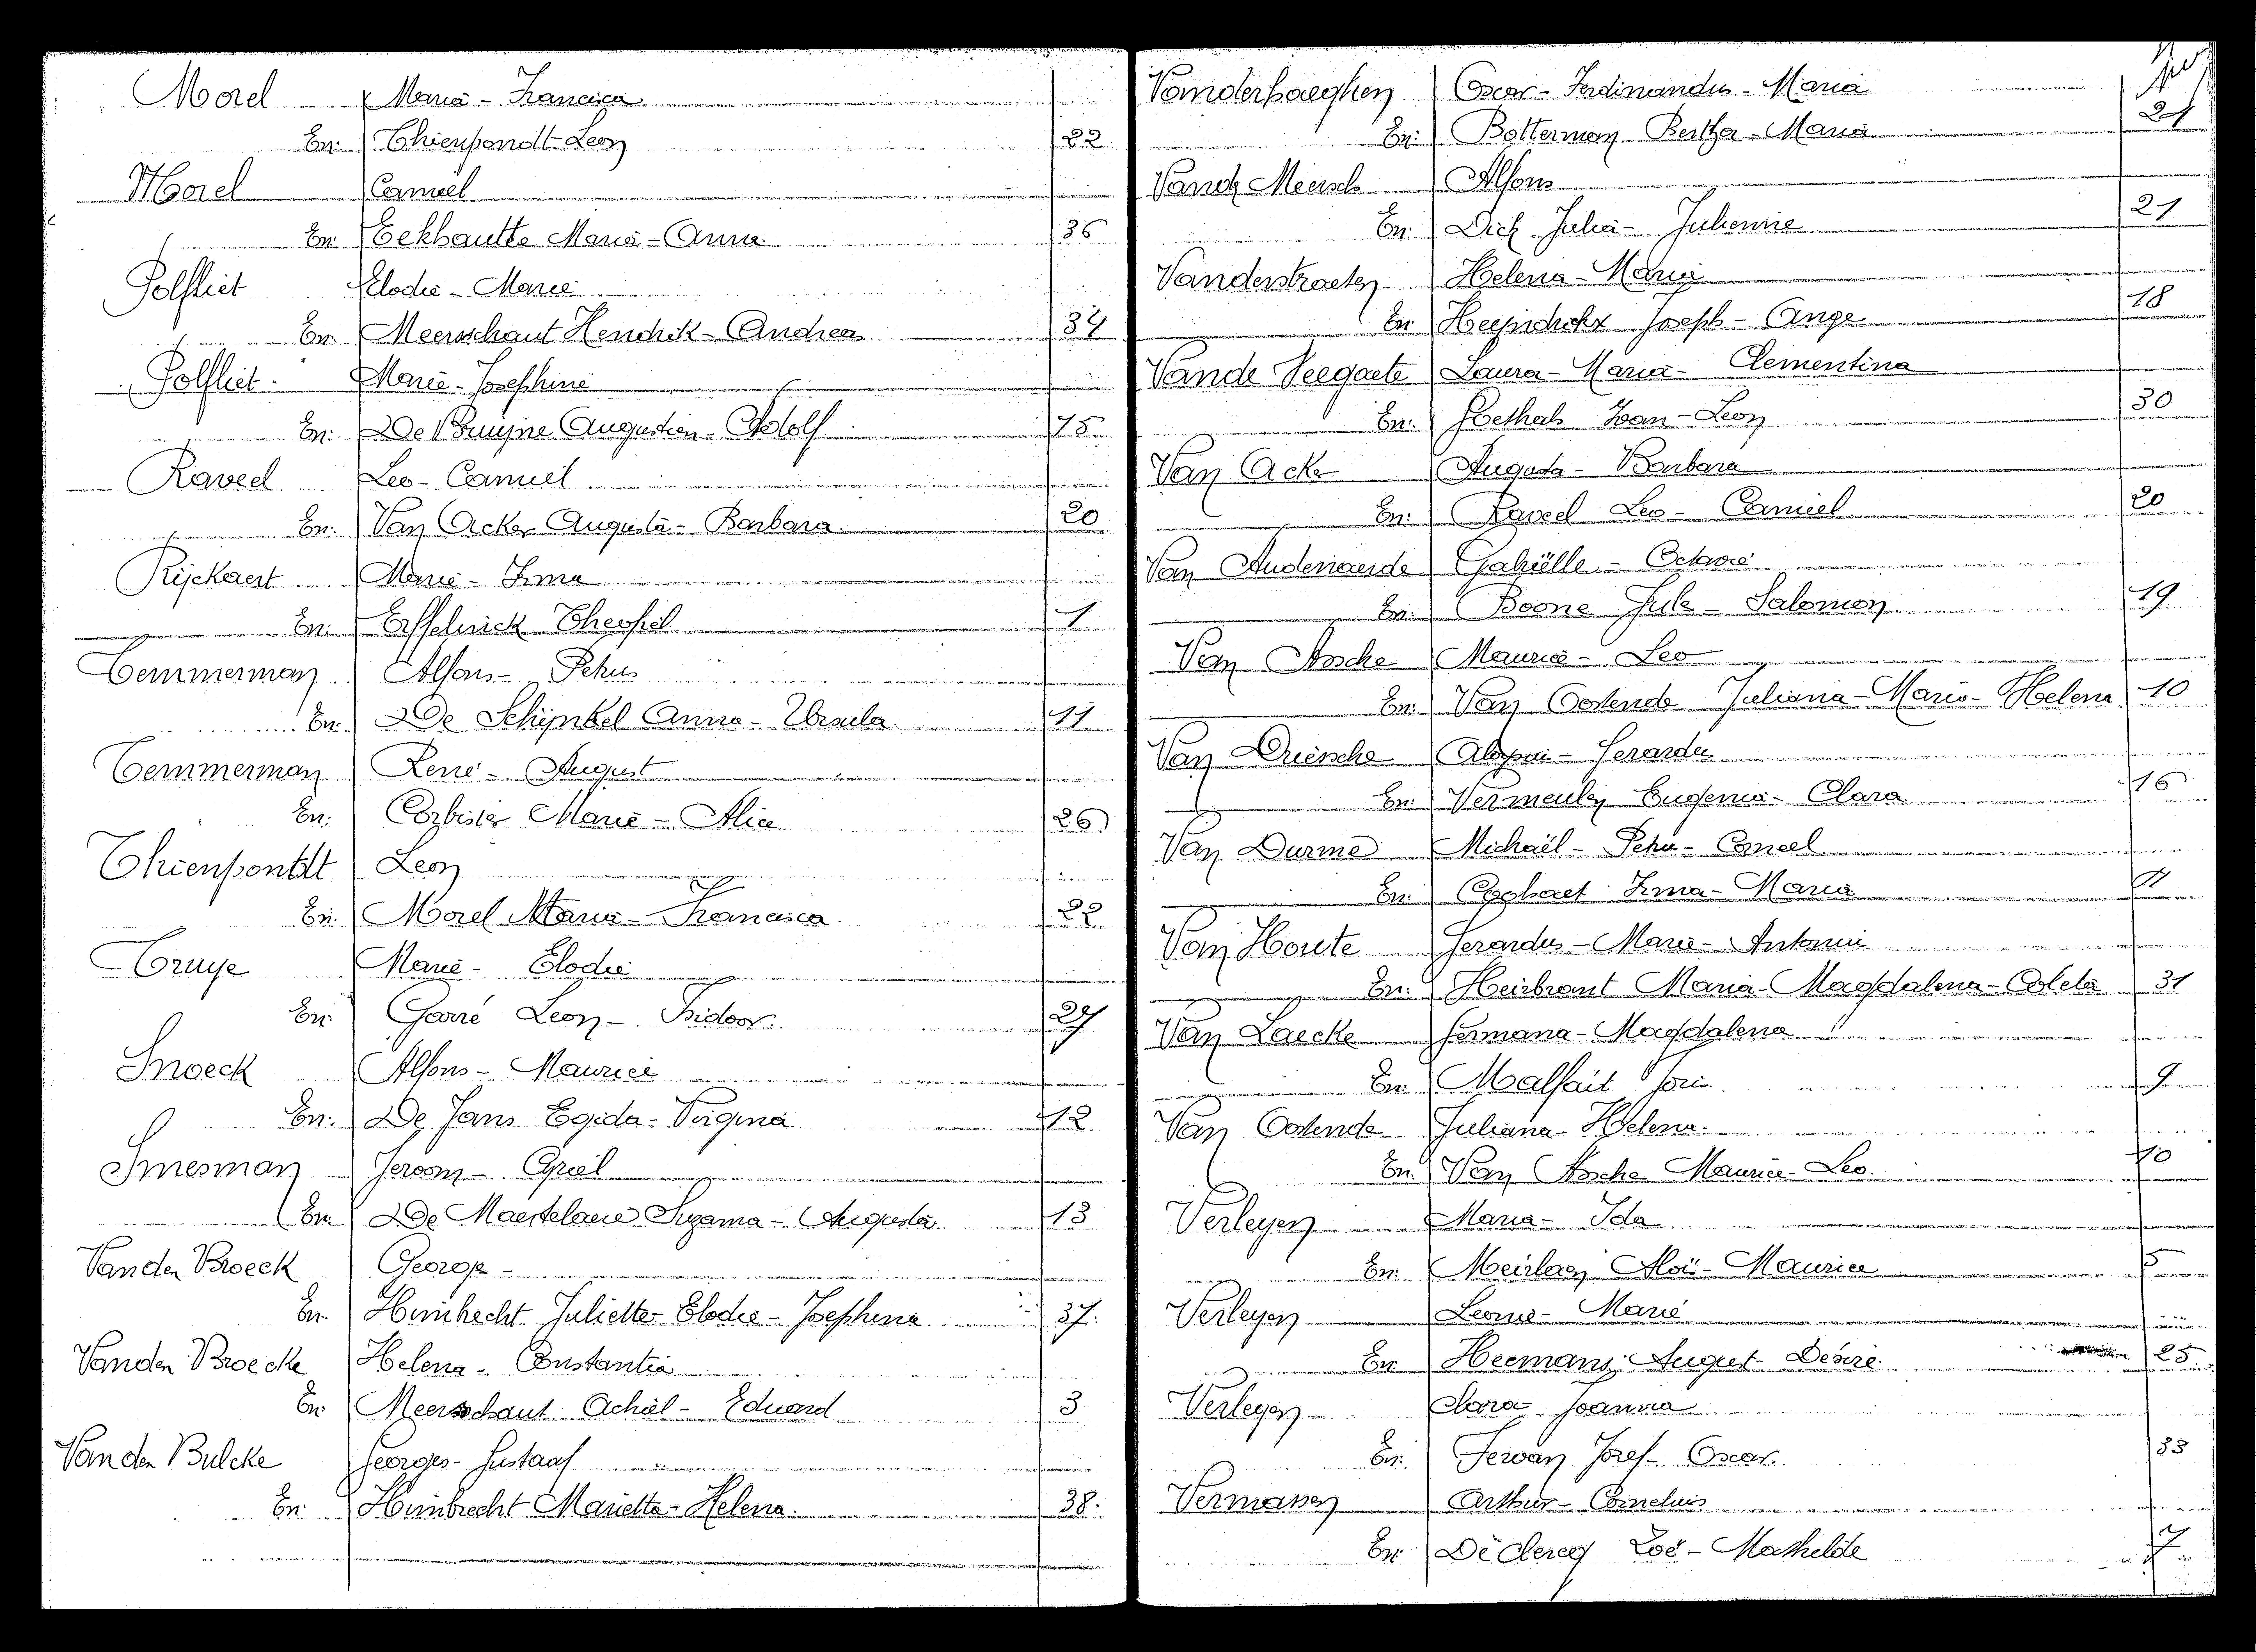 Morel Maria - Francisca
En: Thienpondt Leon 22
Morel Camiel
En: Eekhautte Maria - Anna 36
Polfliet Elodie - Marie
En: Meerschaut Hendrik - Andreas 34
Polfliet Marie - Josephine
En: De Bruijne Augustien - Adolf 15
Raveel Leo - Camiel
En: Van Acker Augusta - Barbara 20
Rijckaert Marie - Irma
En: Effelinick Theofiel 1
Temmerman Alfons - Petrus
En: De Schijnkel Anna - Ursula 11
Temmerman René - August
En: Corbisier Marie - Alice 26
Thienpontdt Leon
En: Morel Maria - Francisca 22
Truye Marie - Elodie
En: Garré Leon - Isidoor. 27
Snoeck Alfons - Maurice
En: De Jans Egida - Virginia 12
Smesman Jeroom - Cyriel
En: De Maertelaere Suzanna - Augusta 13
Van den Broeck George -
En: Heimbrecht Juliette - Elodie - Josephina 37.
Van den Broecke Helena - Constantia
En: Meerschaut Achiel - Eduard 3
Van den Bulcke Georges - Gustaaf
En: Heimbrecht Mariette - Helena 38.
Vanderhaeghen Oscar - Ferdinandus - Maria
En: Botterman Bertha - Maria 24
Vande Meersch Alfons
En: Julia - Julienne 21
Vanderstraeten Helena - Maria
En Heyndrickx Joseph - Ange 18
Vande Veegaete Laura - Maria - Clementina
En: Goethals Ivan - Leon 30
Van Acker Augusta - Barbara
En: Raveel Leo - Camiel 20
Van Audenaerde Gabriëlle - Octavie
En: Boone Jules - Salomon 19
Van Assche Maurice - Leo
En: Van Oostende Juliana - Maria - Helena 10
Van Driessche Aloysius - Gerardus
En: Vermeulen Eugenia - Clara 16
Van Durme Michaël - Petrus - Corneel
En: Egghaet Irma - Maria
Van Houte Gerardus - Maria - Antonius
En: Heirbrant Maria - Magdalena - Coleta 31
Van Laecke Germana - Magdalena
En: Malfait Joris 9
Van Oostende Juliana - Helena.
En: Van Assche Maurice - Leo. 10
Verleyen Maria - Ida
En: Meirlaen Aloïs - Maurice 5
Verleyen Leonie - Marie
En: Heemans August - Désiré 25
Verleyen Clara - Joanna
En: Jozef - Oscar. 33
Vermassen Arthur - Cornelius
En: De Clercq Zoë - Mathilde 7